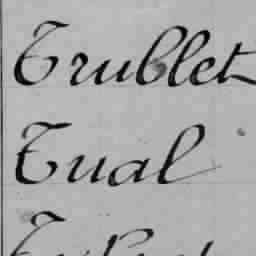 Trublet
Tual